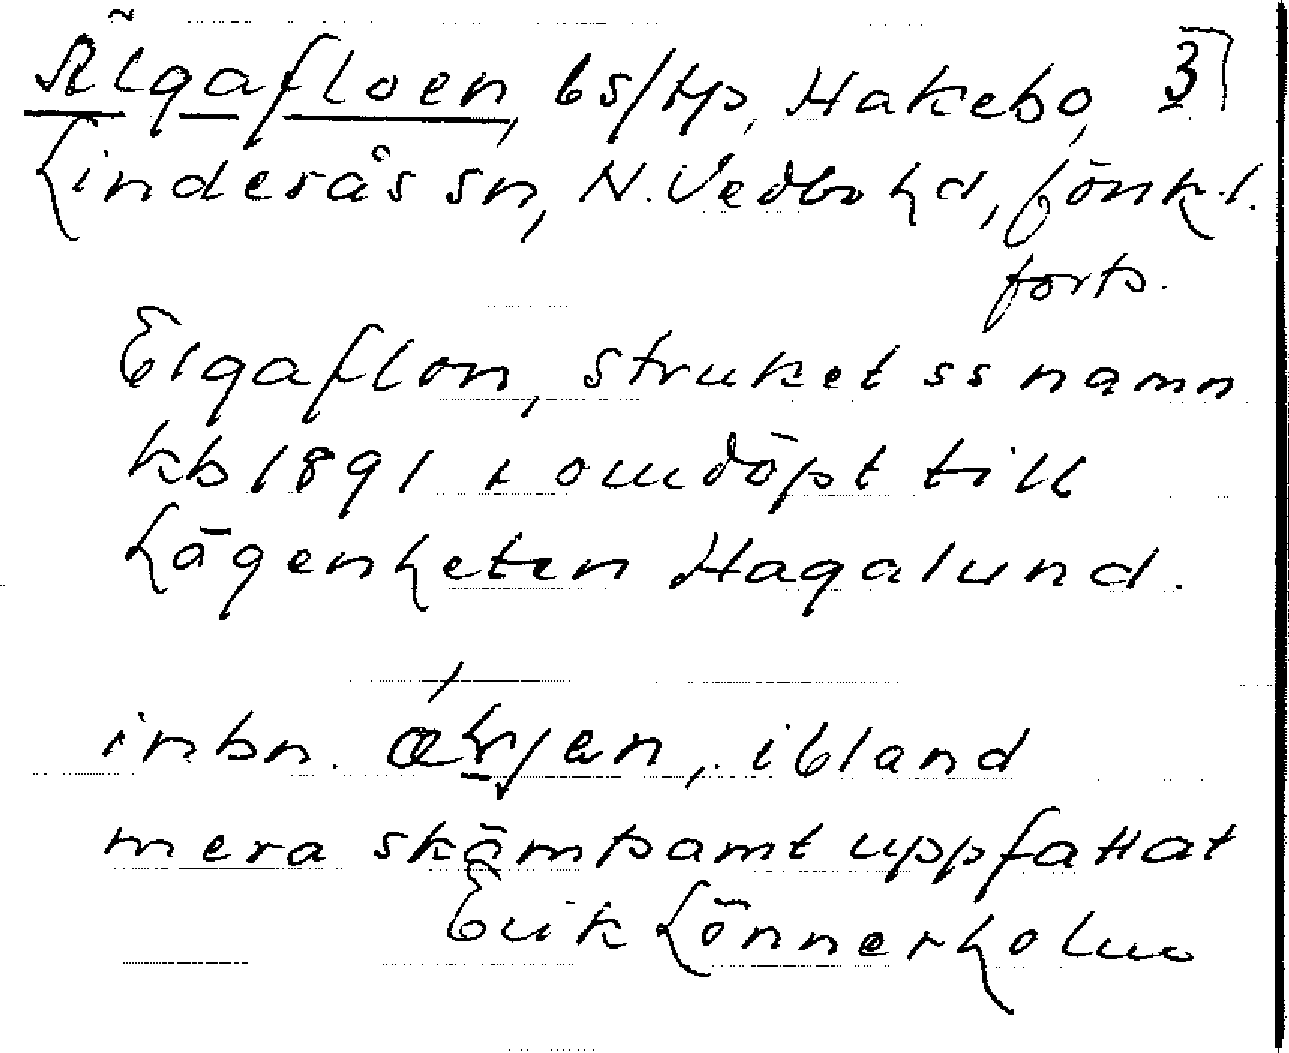 Älgafloen, bs/tp, Hakebo, 3
Linderås sn, N. Vedbo hd, Jönk. l.
forts.
Elgaflon, struket ss namn
kb 1891 & omdöpt till
Lägenheten Hagalund.
inbn. , ibland
mera skämtsamt uppfattat
Erik Lönnerholm